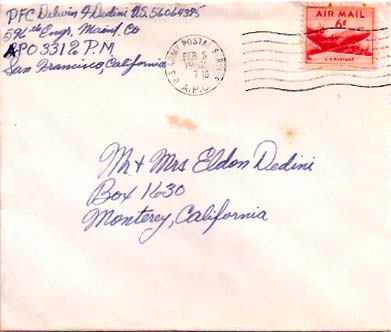 PFC Delwin J Dedini U.S. 56064385
596th Engr. Maint. Co
APO 331 % P.M.
San Francisco, California
U.S. ARMY POSTAL SERVICE
FEB 5
1952
A.P.O.
AIR MAIL
6¢
U.S. POSTAGE
Mr & Mrs Eldon Dedini
Box 1630
Monterey, California